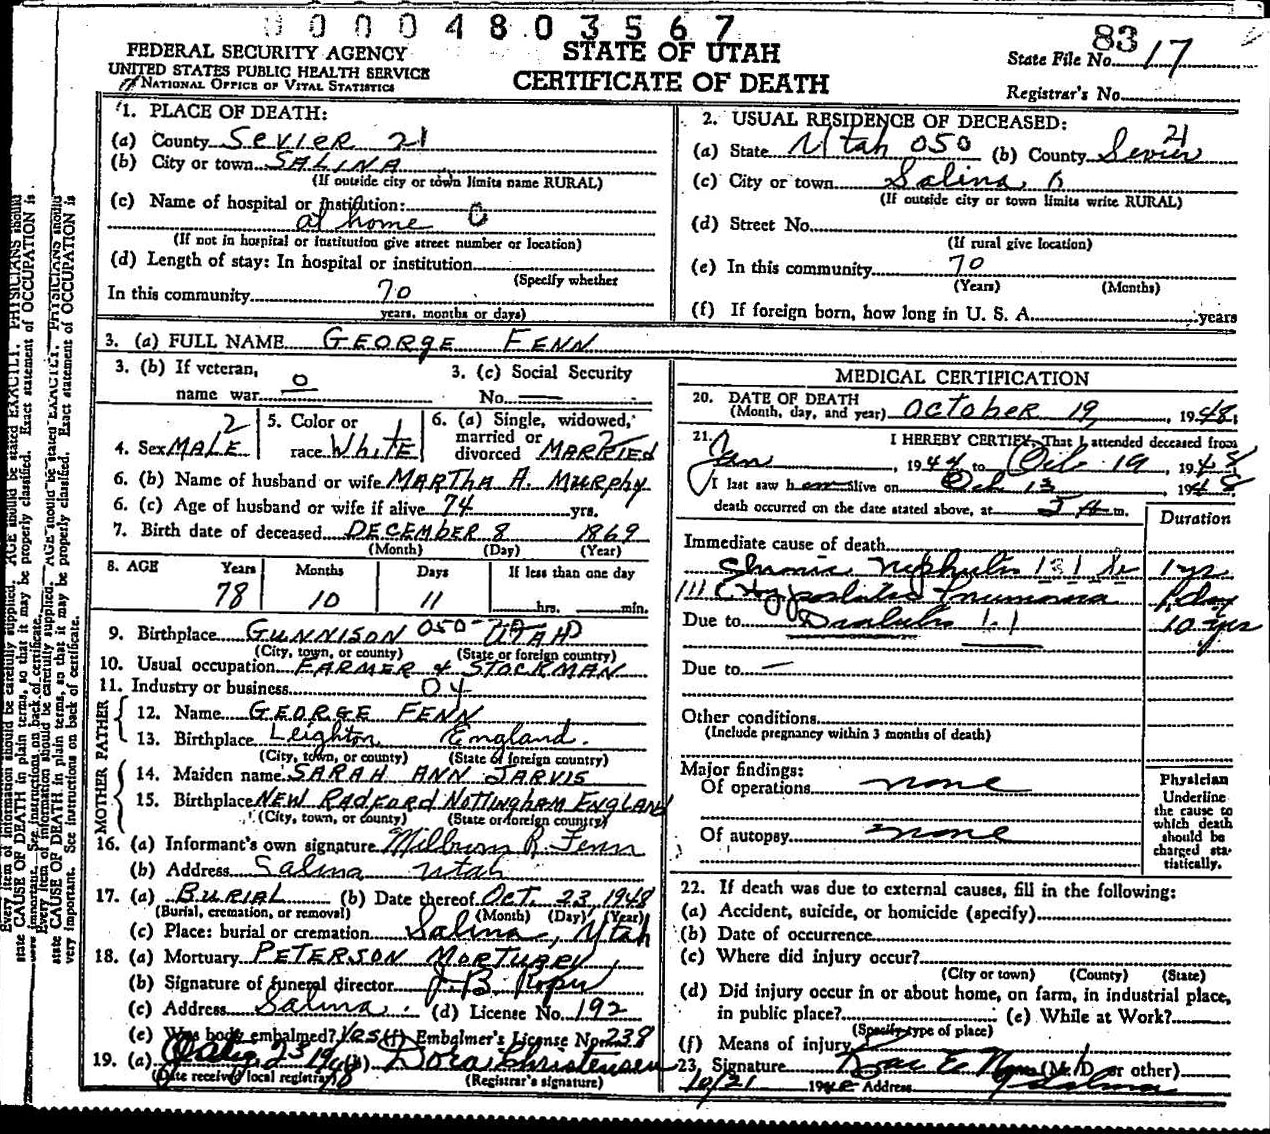 0 0 0 0 4 8 0 3 5 6 7
FEDERAL SECURITY AGENCY
UNITED STATES PUBLIC HEALTH SERVICE
NATIONAL OFFICE OF VITAL STATISTICS
STATE OF UTAH
CERTIFICATE OF DEATH
83
State File No. 17
Registrar's No.
1. PLACE OF DEATH:
(a) County SEVIER 21
(b) City or town SALINA
(If outside city or town limits name RURAL)
(c) Name of hospital or institution:
at home 0
(If not in hospital or institution give street number or location)
(d) Length of stay: In hospital or institution
(Specify whether
In this community 70
years, months or days)
2. USUAL RESIDENCE OF DECEASED:
(a) State Utah 050 (b) County Sevier 21
(c) City or town Salina 0
(If outside city or town limits write RURAL)
(d) Street No.
(If rural give location)
(e) In this community 70
(Years) (Months)
(f) If foreign born, how long in U. S. A. years
3. (a) FULL NAME GEORGE FENN
3. (b) If veteran, name war 0
3. (c) Social Security No. —
4. Sex MALE 2
5. Color or race White 1
6. (a) Single, widowed, married or divorced MARRIED 2
6. (b) Name of husband or wife MARTHA A. MURPHY
6. (c) Age of husband or wife if alive 74 yrs.
7. Birth date of deceased DECEMBER 8 1869
(Month) (Day) (Year)
8. AGE Years Months Days If less than one day
78 10 11 hrs. min.
9. Birthplace GUNNISON 050 UTAH
(City, town, or county) (State or foreign country)
10. Usual occupation FARMER & STOCKMAN
11. Industry or business 04
FATHER
12. Name GEORGE FENN
13. Birthplace Leighton England.
(City, town, or county) (State of foreign country)
MOTHER
14. Maiden name SARAH ANN JARVIS
15. Birthplace NEW RADFORD NOTTINGHAM ENGLAND
(City, town, or county) (State or foreign country)
16. (a) Informant's own signature Milburn R Fenn
(b) Address Salina Utah
17. (a) BURIAL (b) Date thereof Oct. 23, 1948
(Burial, cremation, or removal) (Month) (Day) (Year)
(c) Place: burial or cremation Salina, Utah
18. (a) Mortuary PETERSON MORTUARY
(b) Signature of funeral director J. B. Roper
(c) Address Salina. (d) License No. 192
(e) Was body embalmed? Yes (f) Embalmer's License No. 238
19. (a) 23 1948 (b) Dora Christensen
(Date received local registrar) (Registrar's signature)
MEDICAL CERTIFICATION
20. DATE OF DEATH
(Month, day, and year) October 19, 1948.
21. I HEREBY CERTIFY, That I attended deceased from
Jan, 1944 to Oct 19, 1948
I last saw h alive on Oct 13 1948
death occurred on the date stated above, at m.
Duration
Immediate cause of death
Chronic Nephritis 131 1 yr
111 C Hypostatic Pneumonia 1 day
Due to Diabetes 10 yrs
Due to —
Other conditions
(Include pregnancy within 3 months of death)
Major findings:
Of operations none
Of autopsy none
Physician
Underline the cause to which death should be charged statistically.
22. If death was due to external causes, fill in the following:
(a) Accident, suicide, or homicide (specify)
(b) Date of occurrence
(c) Where did injury occur?
(City or town) (County) (State)
(d) Did injury occur in or about home, on farm, in industrial place,
in public place? (e) While at Work?
(Specify type of place)
(f) Means of injury
23. Signature Rae E (M. D. or other)
10/21 1948 Address Salina